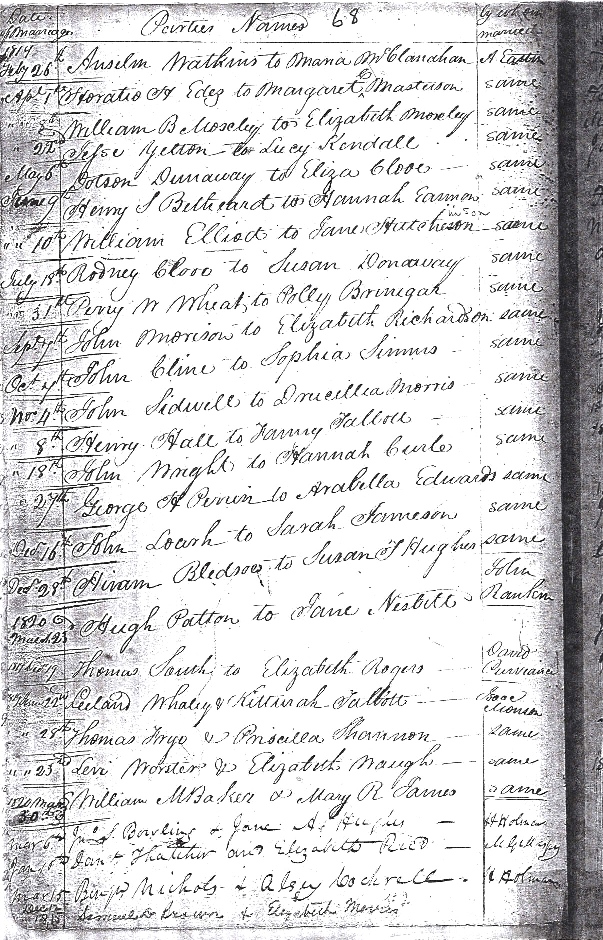 Date of Marriages Parties Names 68 by whom married
1819
Feby 26th Anselm Watkins to Mana McClanahan A Eastin
Apl 1st Horatio H Edez to Margaret Masterson same
William B Moseley to Elizabeth Moseley same
22nd Jesse Yelton to Lucy Kendall same
May 6th Dotson Dunaway to Eliza Clove — same
June 9th Henry S to Hannah same
" " 10th William Elliott to Jane Hutcheson same
July 18th Rodney Clove to Susan Donaway same
" 31st Perry W Wheat to Polly Brinegar same
Sept 9th John Morrison to Elizabeth Richardson same
Oct John Cline to Sophia Simms same
Nov 4th John Sidwell to Drucillia Morris same
" 8th Henry Hall to Fanny Talbott — same
" 18th John Wright to Hannah Curle same
" 27th George H Perrin to Arabella Edwards same
Decr 16th John to Sarah Jameson same
Decr 28th Hiram Bledsoe to Susan T Hughes same
1820 March 23 Hugh Patton to Jane Nesbitt John Rankin
Thomas South to Elizabeth Rogers — David Purviance
22nd Leeland Whaley & Kittirah Talbott — Monson
" 28th Thomas Frye & Priscilla Shannon — same
" " 23rd Levi Worster & Elizabeth Waugh — same
1820 30 William M Baker & Mary R James same
Mar 6th Jno S Bowling & Jane A Hughes — H Holman
Danl Thatcher and Elizabeth Reed —
Mar 15 Nichols & Alsey Cockrell — H Holman
Decr Samuel D Brown & Elizabeth Morris